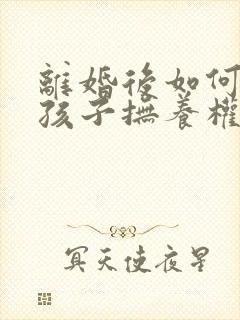 離婚後如何
孩子撫養權
冥天使夜星